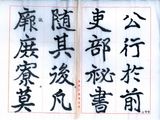 公行於前
吏部祕書
隨其後凡
廊庶寮莫